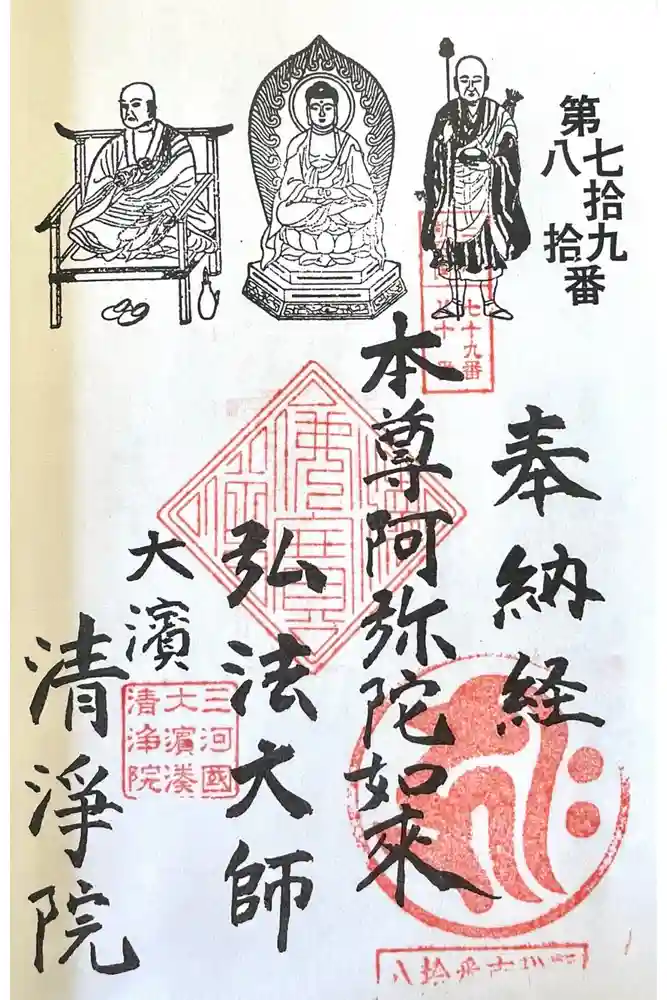 第七拾九番
八拾番
奉納経
本尊阿弥陀如來
弘法大師
大濱
清淨院
七十九番
三河國
大濱湊
清浄院